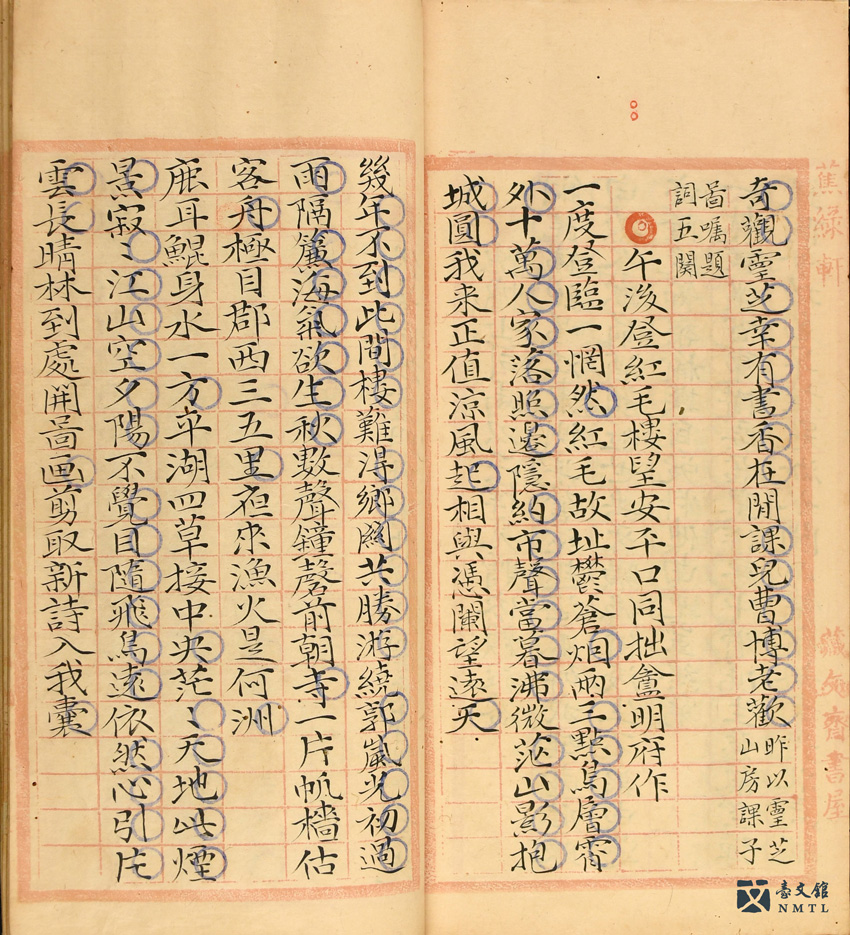 奇觀靈芝幸有書香在閒課兒曹博老歡昨以靈芝山房課子
啚囑題詞五闋
午後登紅毛樓望安平口同拙盦明府作
一度登臨一惘然紅毛故址鬱蒼烟兩三點鳥層霄
外十萬人家落照邊隱約市聲當暮沸微茫山影抱
城圓我来正值涼風起相與憑闌望遠天
幾年不到此間樓難得鄉関共勝游繞郭嵐光初過
雨隔簾海氣欲生秋數聲鐘磬前朝寺一片帆檣估
客舟極目郡西三五里夜來漁火是何洲
鹿耳鯤身水一方平湖四草接中央茫〻天地此煙
景寂〻江山空夕陽不覺目隨飛鳥遠依然心引片
雲長晴林到處開啚画剪取新詩入我囊
蕉綠軒
書屋
臺文館
NMTL